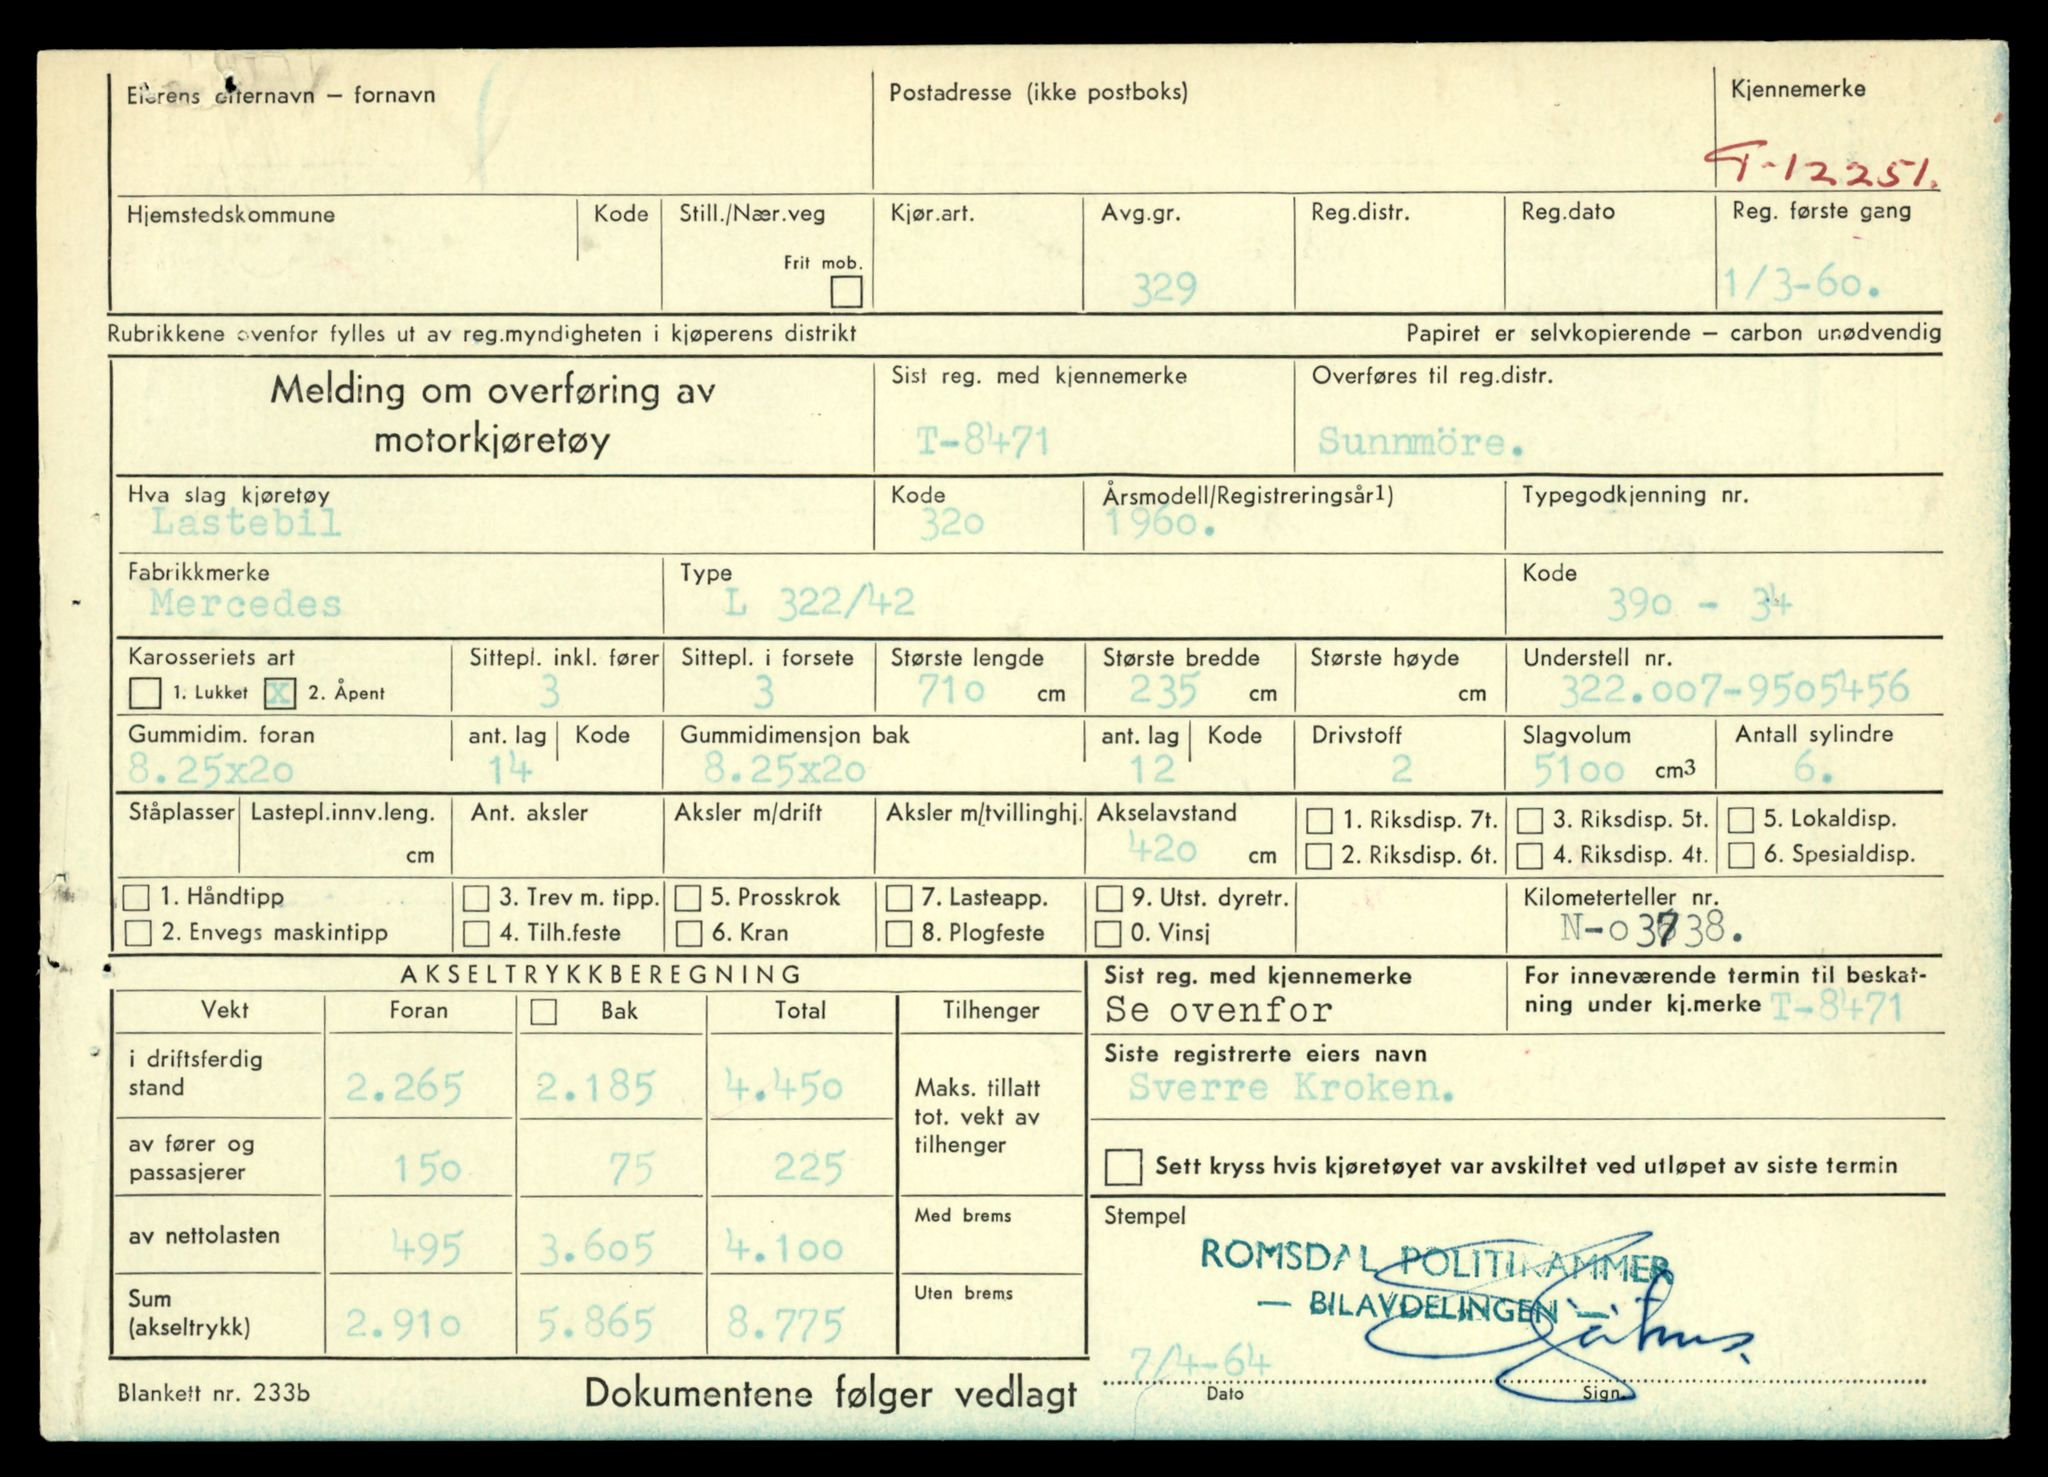 Eierens efternavn – fornavn
Postadresse (ikke postboks)
Kjennemerke
T-12251.
Hjemstedskommune
Kode
Still./Nær.veg
Frit mob.
Kjør.art.
Avg.gr.
329
Reg.distr.
Reg.dato
Reg. første gang
1/3-60.
Rubrikkene ovenfor fylles ut av reg.myndigheten i kjøperens distrikt
Papiret er selvkopierende – carbon unødvendig
Melding om overføring av
motorkjøretøy
Sist reg. med kjennemerke
T-8471
Overføres til reg.distr.
Sunnmöre.
Hva slag kjøretøy
Lastebil
Kode
320
Årsmodell/Registreringsår1)
1960.
Typegodkjenning nr.
Fabrikkmerke
Mercedes
Type
L 322/42
Kode
390 - 34
Karosseriets art
1. Lukket x 2. Åpent
Sittepl. inkl. fører
3
Sittepl. i forsete
3
Største lengde
710 cm
Største bredde
235 cm
Største høyde
cm
Understell nr.
322.007-9505456
Gummidim. foran
8.25x20
ant. lag
14
Kode
Gummidimensjon bak
8.25x20
ant. lag
12
Kode
Drivstoff
2
Slagvolum
5100 cm3
Antall sylindre
6.
Ståplasser
Lastepl.innv.leng.
cm
Ant. aksler
Aksler m/drift
Aksler m/tvillinghj.
Akselavstand
420 cm
1. Riksdisp. 7t.
2. Riksdisp. 6t.
3. Riksdisp. 5t.
4. Riksdisp. 4t.
5. Lokaldisp.
6. Spesialdisp.
1. Håndtipp
2. Envegs maskintipp
3. Trev m. tipp.
4. Tilh.feste
5. Prosskrok
6. Kran
7. Lasteapp.
8. Plogfeste
9. Utst. dyretr.
0. Vinsj
Kilometerteller nr.
N-03738.
AKSELTRYKKBEREGNING
Vekt Foran Bak Total Tilhenger
i driftsferdig
stand
2.265 2.185 4.450
Maks. tillatt
tot. vekt av
tilhenger
av fører og
passasjerer
150 75 225
av nettolasten
495 3.605 4.100
Med brems
Sum
(akseltrykk)
2.910 5.865 8.775
Uten brems
Sist reg. med kjennemerke
Se ovenfor
For inneværende termin til beskat-
ning under kj.merke T-8471
Siste registrerte eiers navn
Sverre Kroken.
Sett kryss hvis kjøretøyet var avskiltet ved utløpet av siste termin
Stempel
ROMSDAL POLITIKAMMER
— BILAVDELINGEN —
7/4-64
Dato
Sign.
Blankett nr. 233b
Dokumentene følger vedlagt